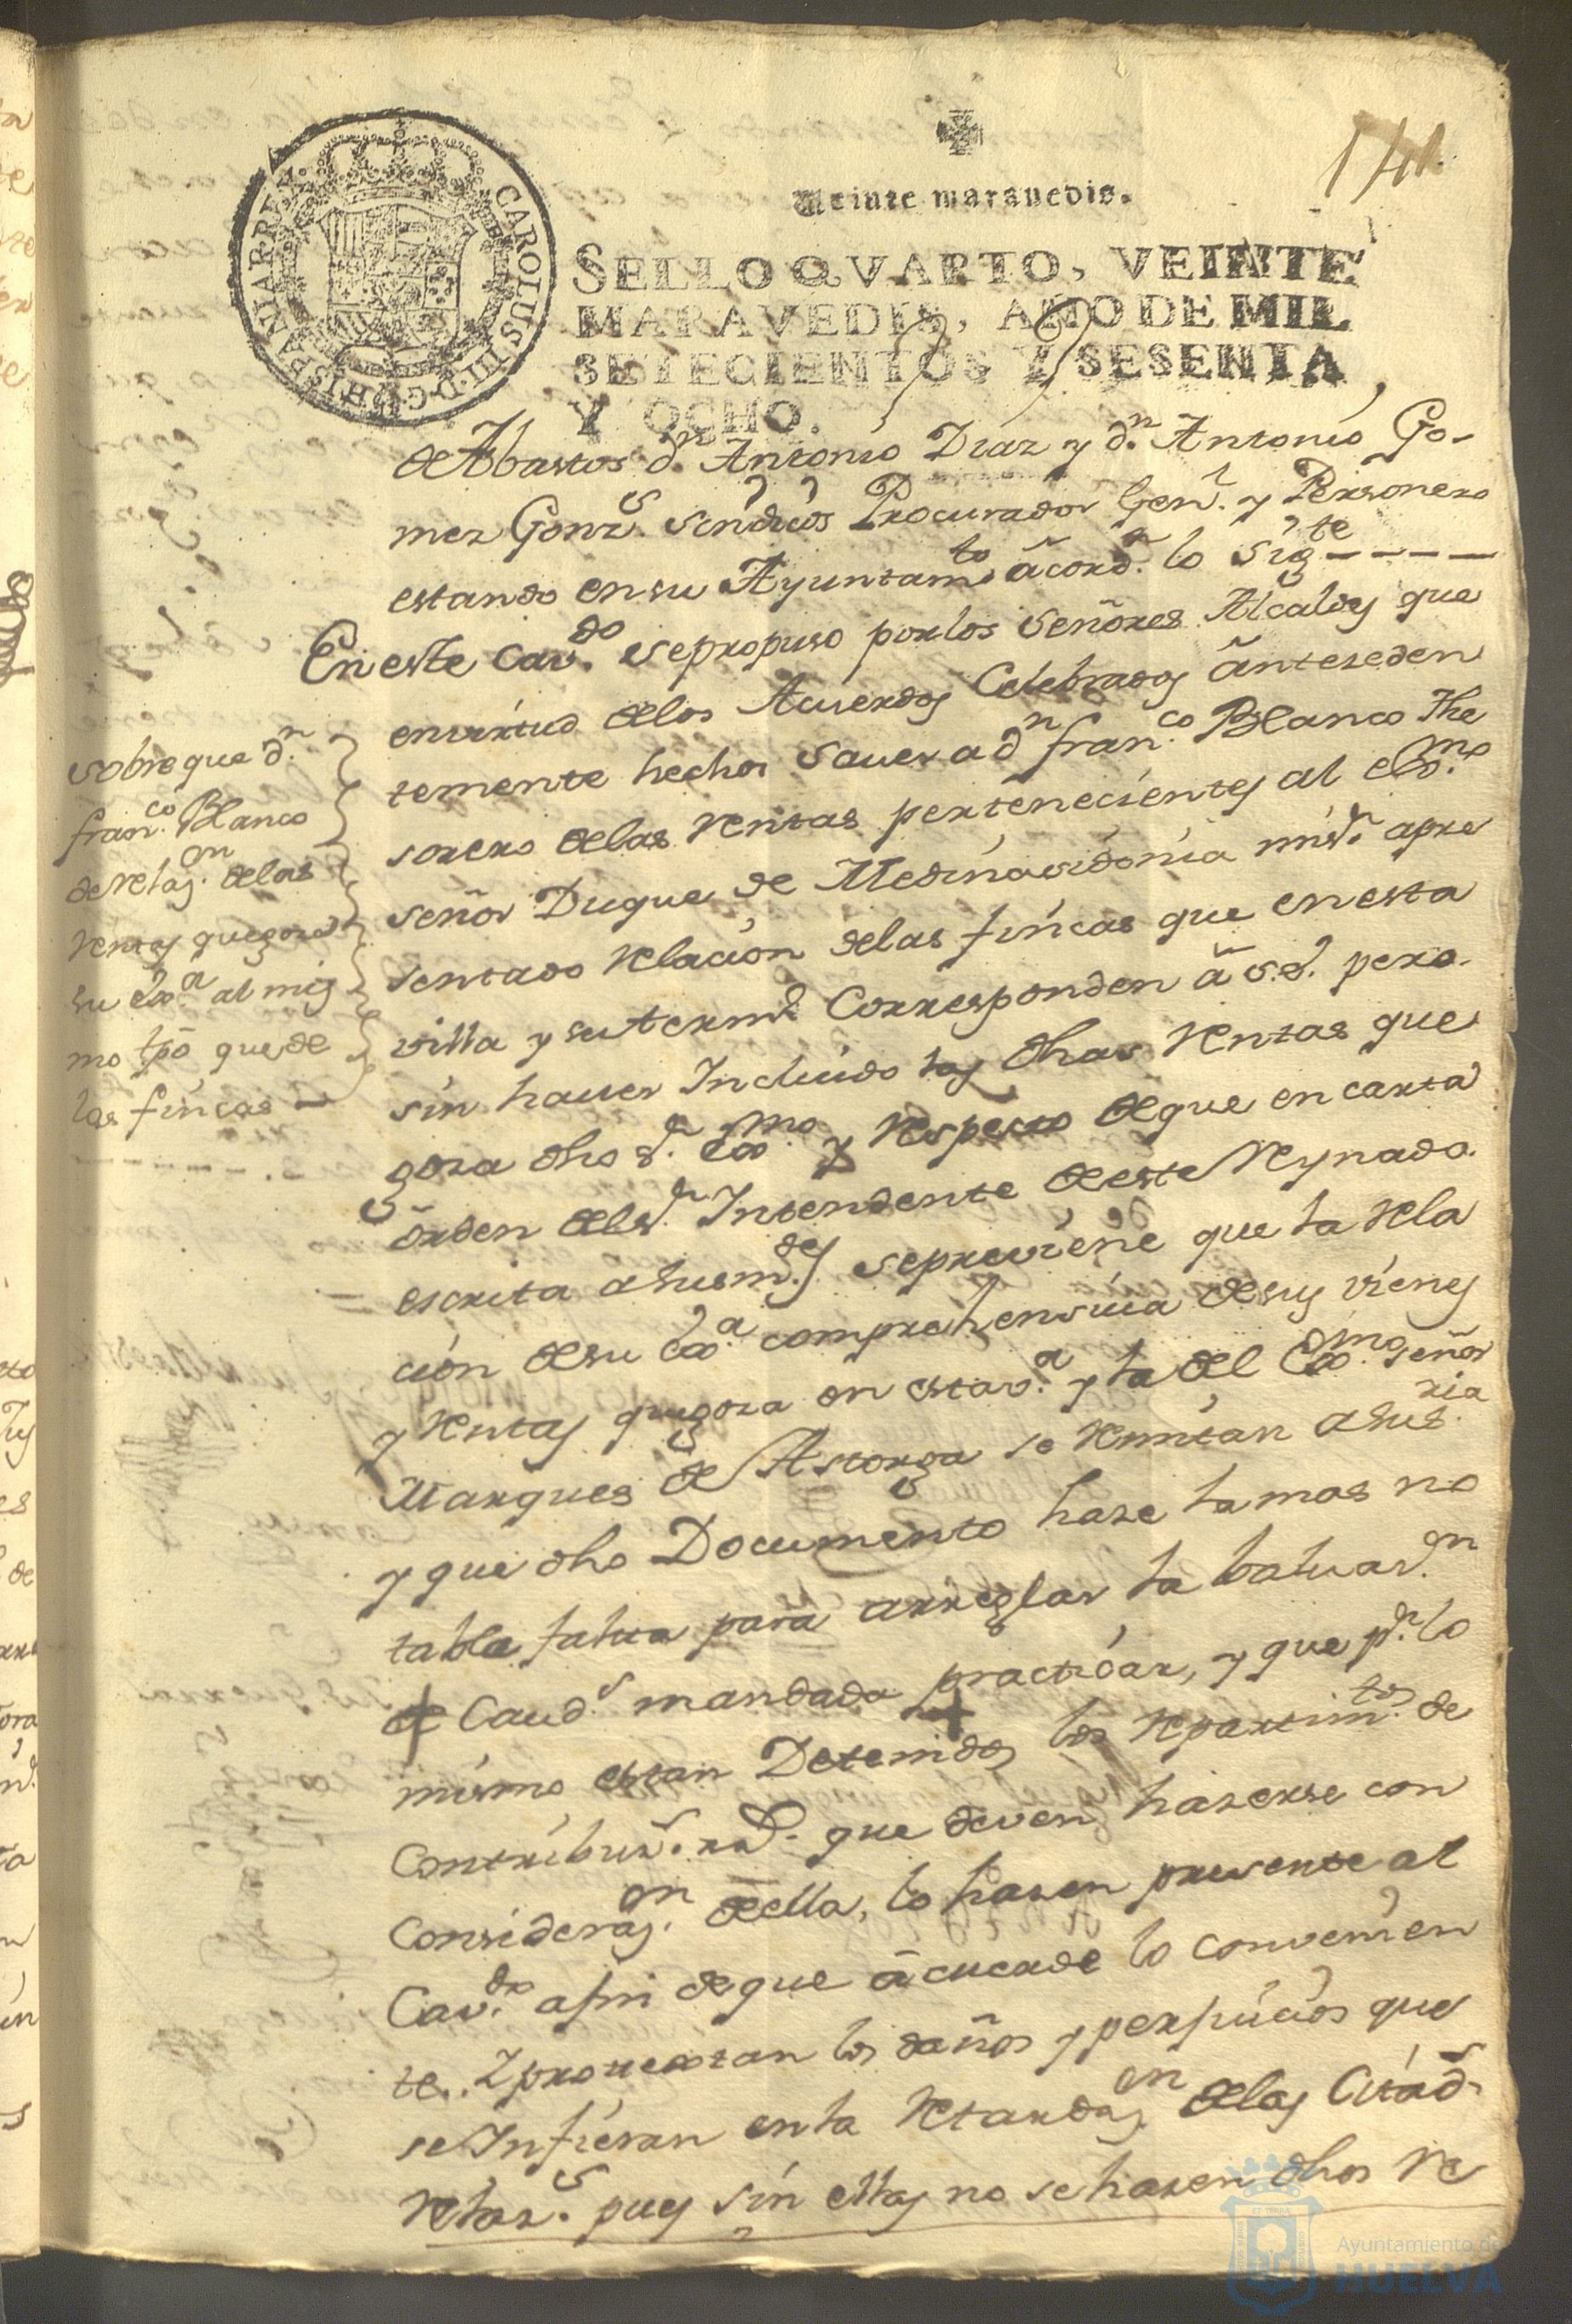 141
Veinte maravedis.
SELLO QVARTO, VEINTE
MARAVEDIS, AÑO DE MIL
SETECIENTOS Y SESENTA
Y OCHO.
CAROLUS III D G HISPANIAR REX
de Abastos dn. Antonio Diaz y dn. Antonio Go-
mez Gonzs. sindicos Procurador Genl. y Personero
estando en su Ayuntamto acordn. lo sigte ----
En este Cavdo. se propuso por los señores Alcaldes que
en virtud de los Acuerdos Celebrados anteseden
temente hechos saver a dn franco. Blanco The
sorero de las Rentas pertenecientes al Exmo.
señor Duque de Medinasidonia
apre
sentado Relacion de las fincas que en esta
villa y su termo. Corresponden a s.E. pero
sin haver Incluido las dhas Rentas que
goza dho sr. Exmo. y Respecto de que en carta
orden del sr. Intendente de este Reynado
escrita a sus mdes se previene que la Rela
cion de su Exa. comprehensiva de sus vienes
y Rentas que goza en esta va. y la del Exmo. señor
Marques de Astorga se Remitan a su sria.
y que dho Documento haze la mas no
table falta para arreglar la
de Cauds mandada practicar, y que pr. lo
mismo estan Detenidos los Repartimtos. de
Contribuzs. que deven hazerse con
Considerazon. de ella, lo hazen presente al
Cavdo. a fin de que acuerde lo convenien
te. Y protextan los daños y perjuicios que
se Infieran en la Retardazon de las Citads.
Relazs. pues sin ellas no se hazen dhos Re
sobre que dn.
franco. Blanco
de Relazon. de las
Rentas que goza
su Exa. al mis
mo tpo que de
las fincas —
Ayuntamiento de
HUELVA